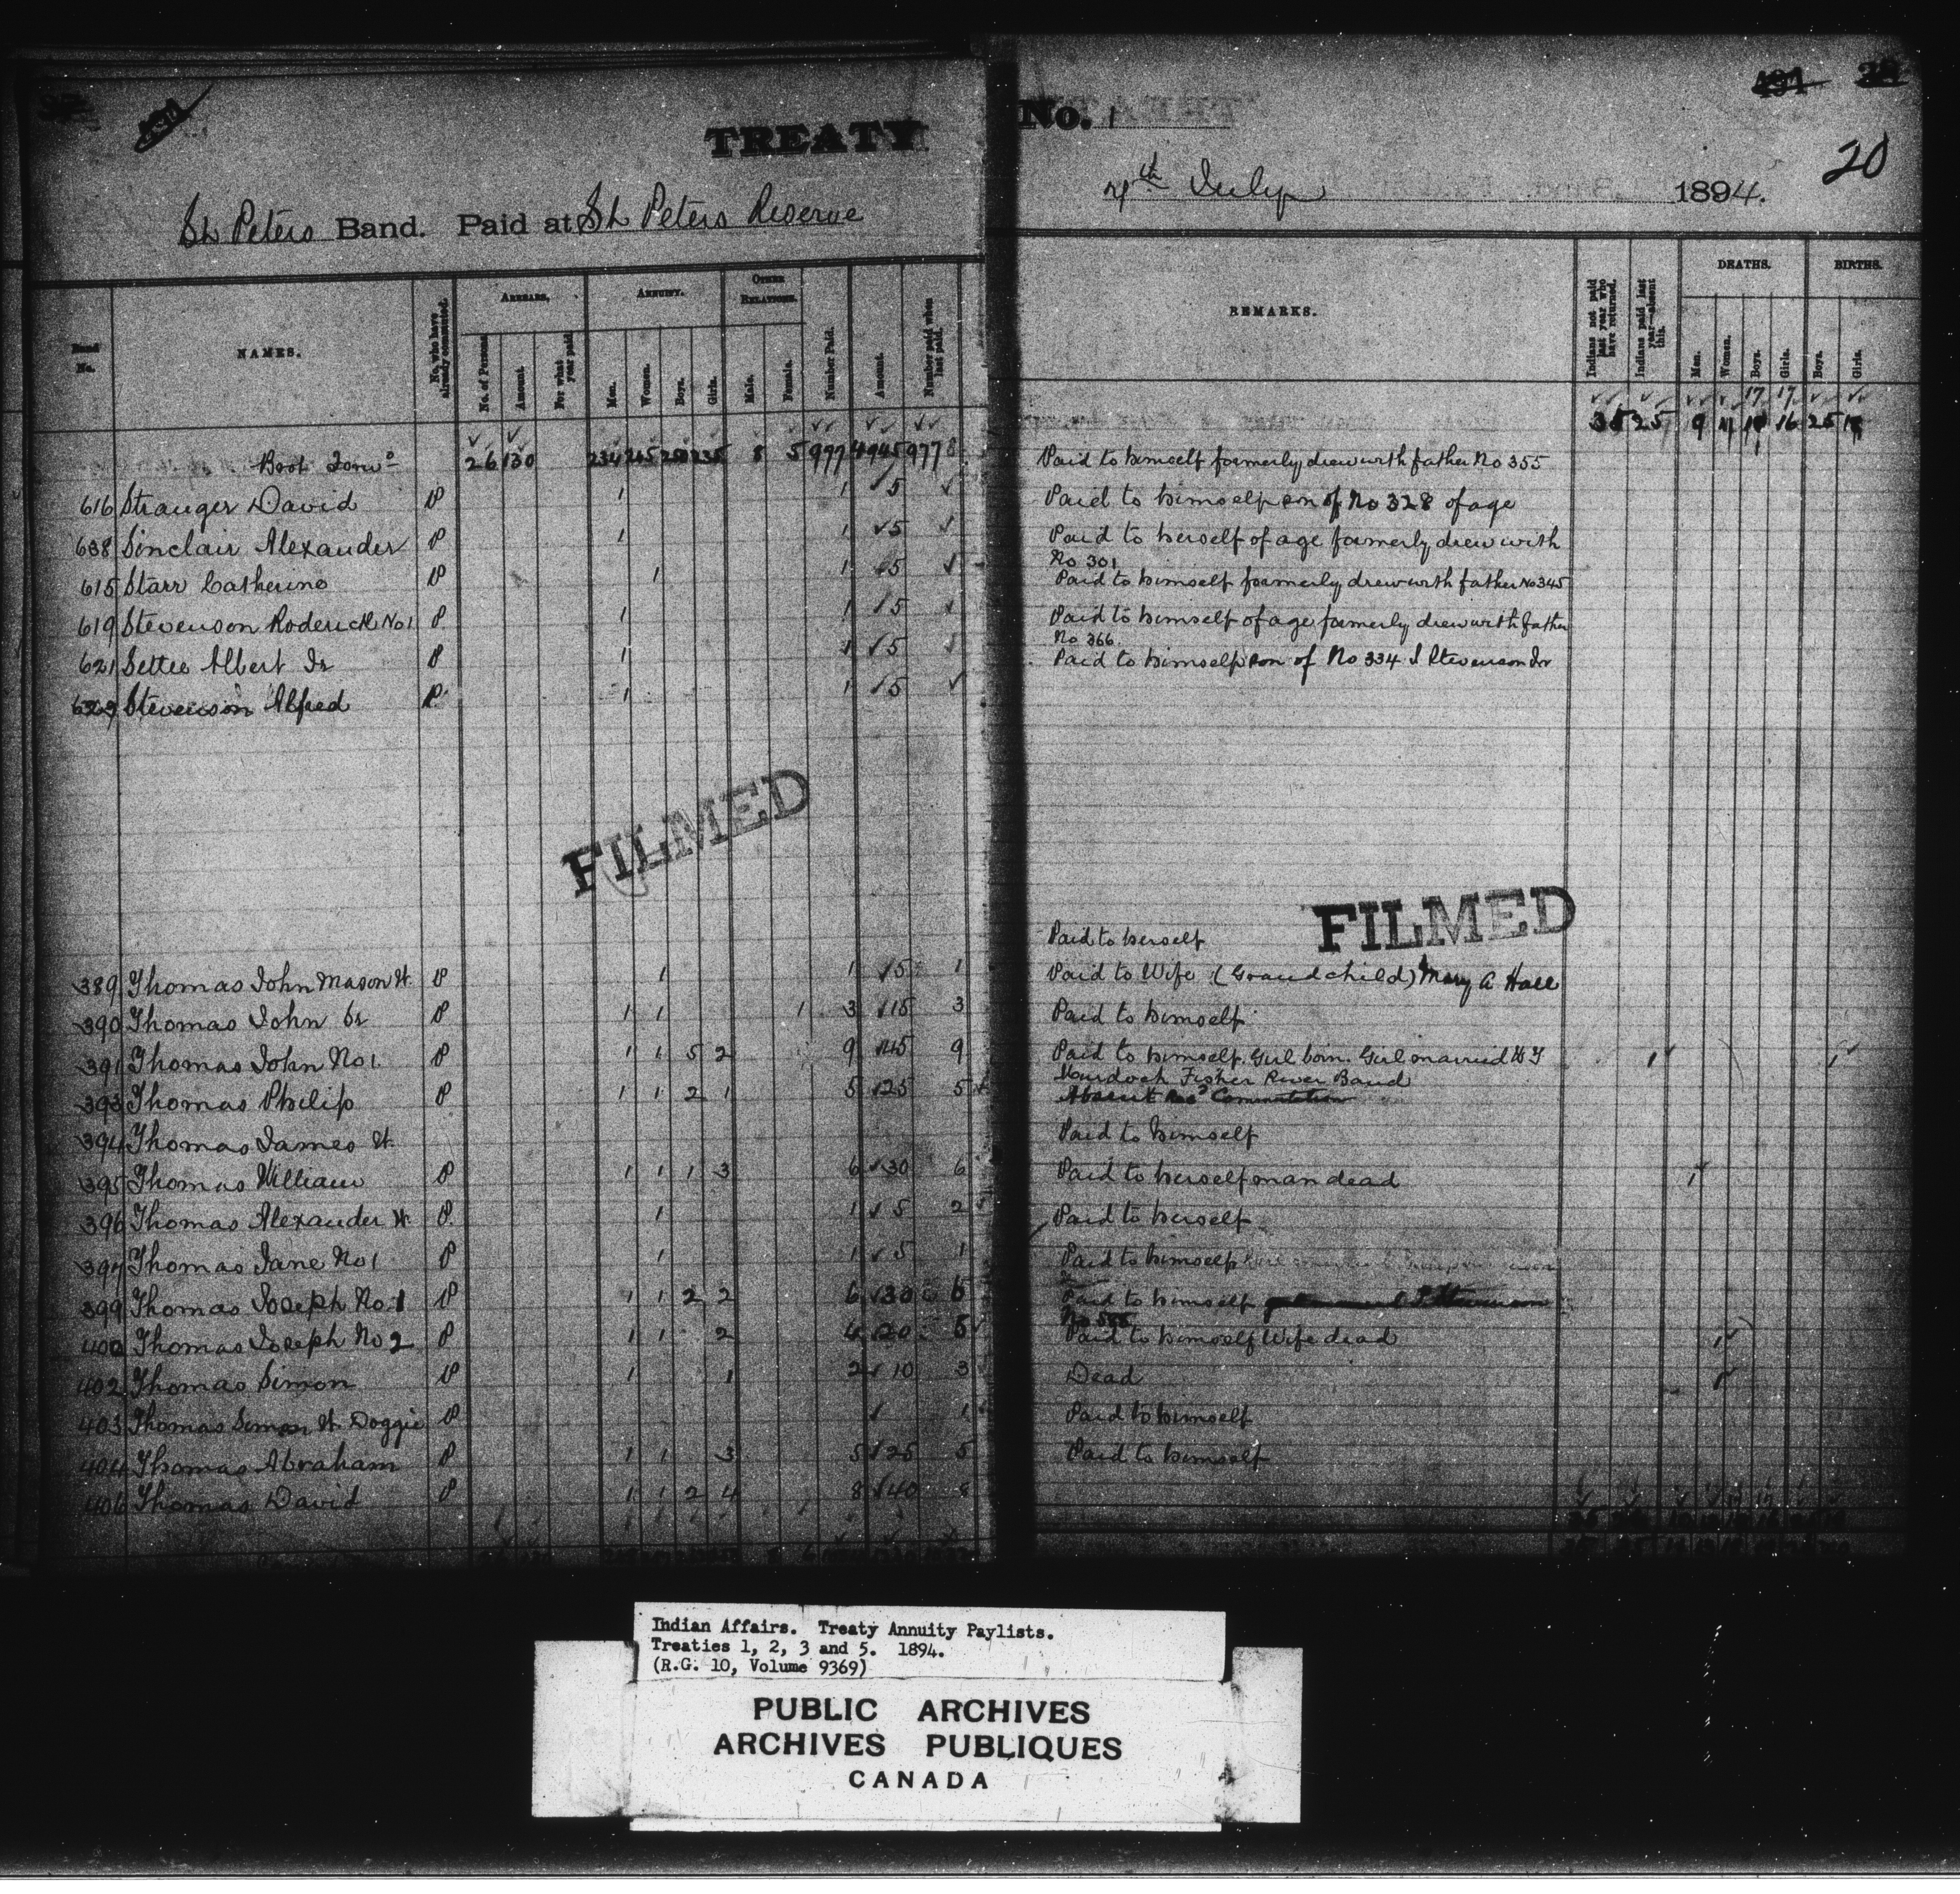 TREATY No. 1
20
St Peters Band. Paid at St Peters Reserve
4th July 1894.
Band No.
NAMES.
No. who have already commuted.
ARREARS.
No. of Persons
Amount.
For what year paid
ANNUITY.
Men.
Women.
Boys.
Girls.
OTHER RELATIONS.
Male.
Female.
Number Paid.
Amount.
Number paid when last paid.
REMARKS.
Indians not paid last year who have returned.
Indians paid last year—absent this.
DEATHS.
Men.
Women.
Boys.
Girls.
BIRTHS.
Boys.
Girls.
17 17
26 130 234 8 5 977 4945 977 25 9 16 25
Paid to himself formerly drew with father No 355
616 Stranger David P 1 1 5
Paid to himself son of No 328 of age
638 Sinclair Alexander P 1 1 5
Paid to herself of age formerly drew with
No 301
615 Starr Catherine P 1 1 5
Paid to himself formerly drew with father No 345
619 Stevenson Roderick No 1 P 1 1 5
Paid to himself of age formerly drew with father
No 366
621 Settee Albert Jr P 1 1 5
Paid to himself son of No 334 J Stevenson Jr
Stevenson Alfred P 1 1 5
FILMED
FILMED
Paid to herself
389 Thomas John Mason W. P 1 1 5 1
Paid to Wife (Grandchild) Mary A Hall
390 Thomas John Sr P 1 1 1 3 15 3
Paid to himself
391 Thomas John No 1. P 1 1 5 2 9 45 9
Paid to himself. Girl born. Girl married to J 1 1
Murdock Fisher River Band
393 Thomas Philip P 1 1 2 1 5 25 5
Absent Commutation
394 Thomas James W.
Paid to himself
395 Thomas William P 1 1 1 3 6 30 6
Paid to herself man dead 1
396 Thomas Alexander W. P. 1 1 5 2
Paid to herself
397 Thomas Jane No 1 P 1 1 5 1
Paid to himself
399 Thomas Joseph No. 1 P 1 1 2 2 6 30 6
Paid to himself
400 Thomas Joseph No 2 P 1 1 2 4 20 5
Paid to himself Wife dead 1
402 Thomas Simon P 1 1 2 10 3
Dead 1
403 Thomas Simon W. Doggie P 1
Paid to himself
404 Thomas Abraham P 1 1 3 5 25 5
Paid to himself
406 Thomas David P 1 1 2 4 8 40 8
Indian Affairs. Treaty Annuity Paylists.
Treaties 1, 2, 3 and 5. 1894.
(R.G. 10, Volume 9369)
PUBLIC ARCHIVES
ARCHIVES PUBLIQUES
CANADA